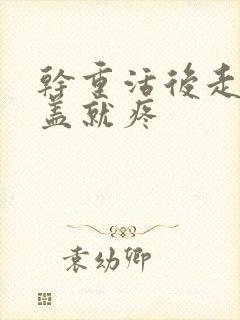 幹重活後走
盖就疼
袁幼卿